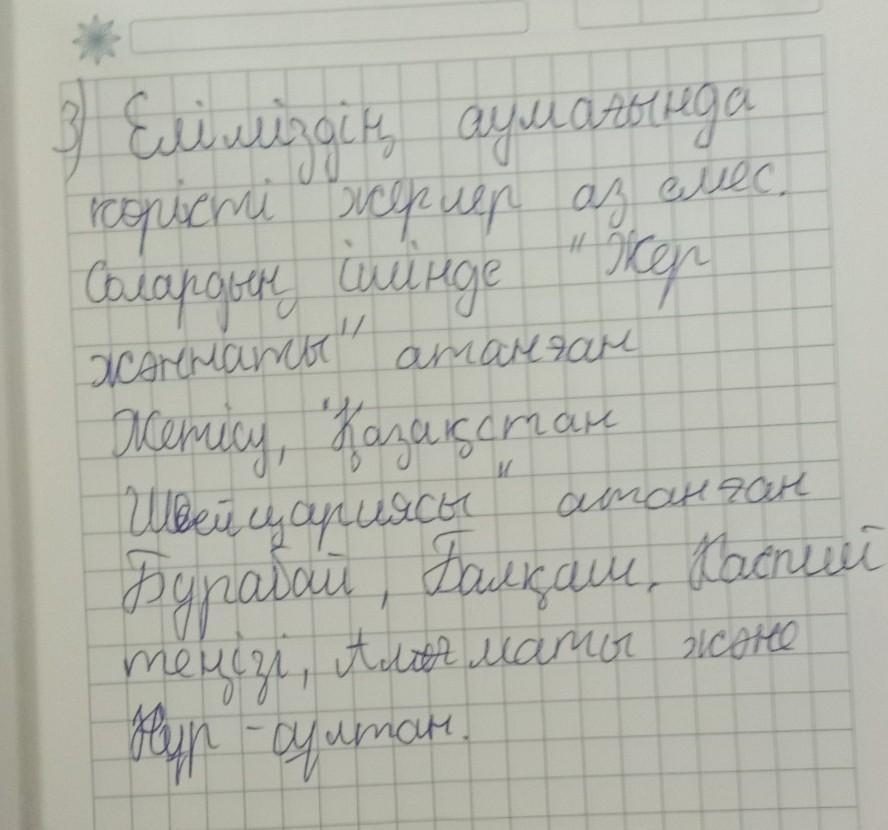 3) Еліміздің аумағында
көрікті жерлер аз емес.
Солардың ішінде "Жер
жәннаты" атанған
Жетісу, "Қазақстан
Швейцариясы" атанған
Бурабай, Балқаш, Каспий
теңізі, Алматы және
Нұр-сұлтан.